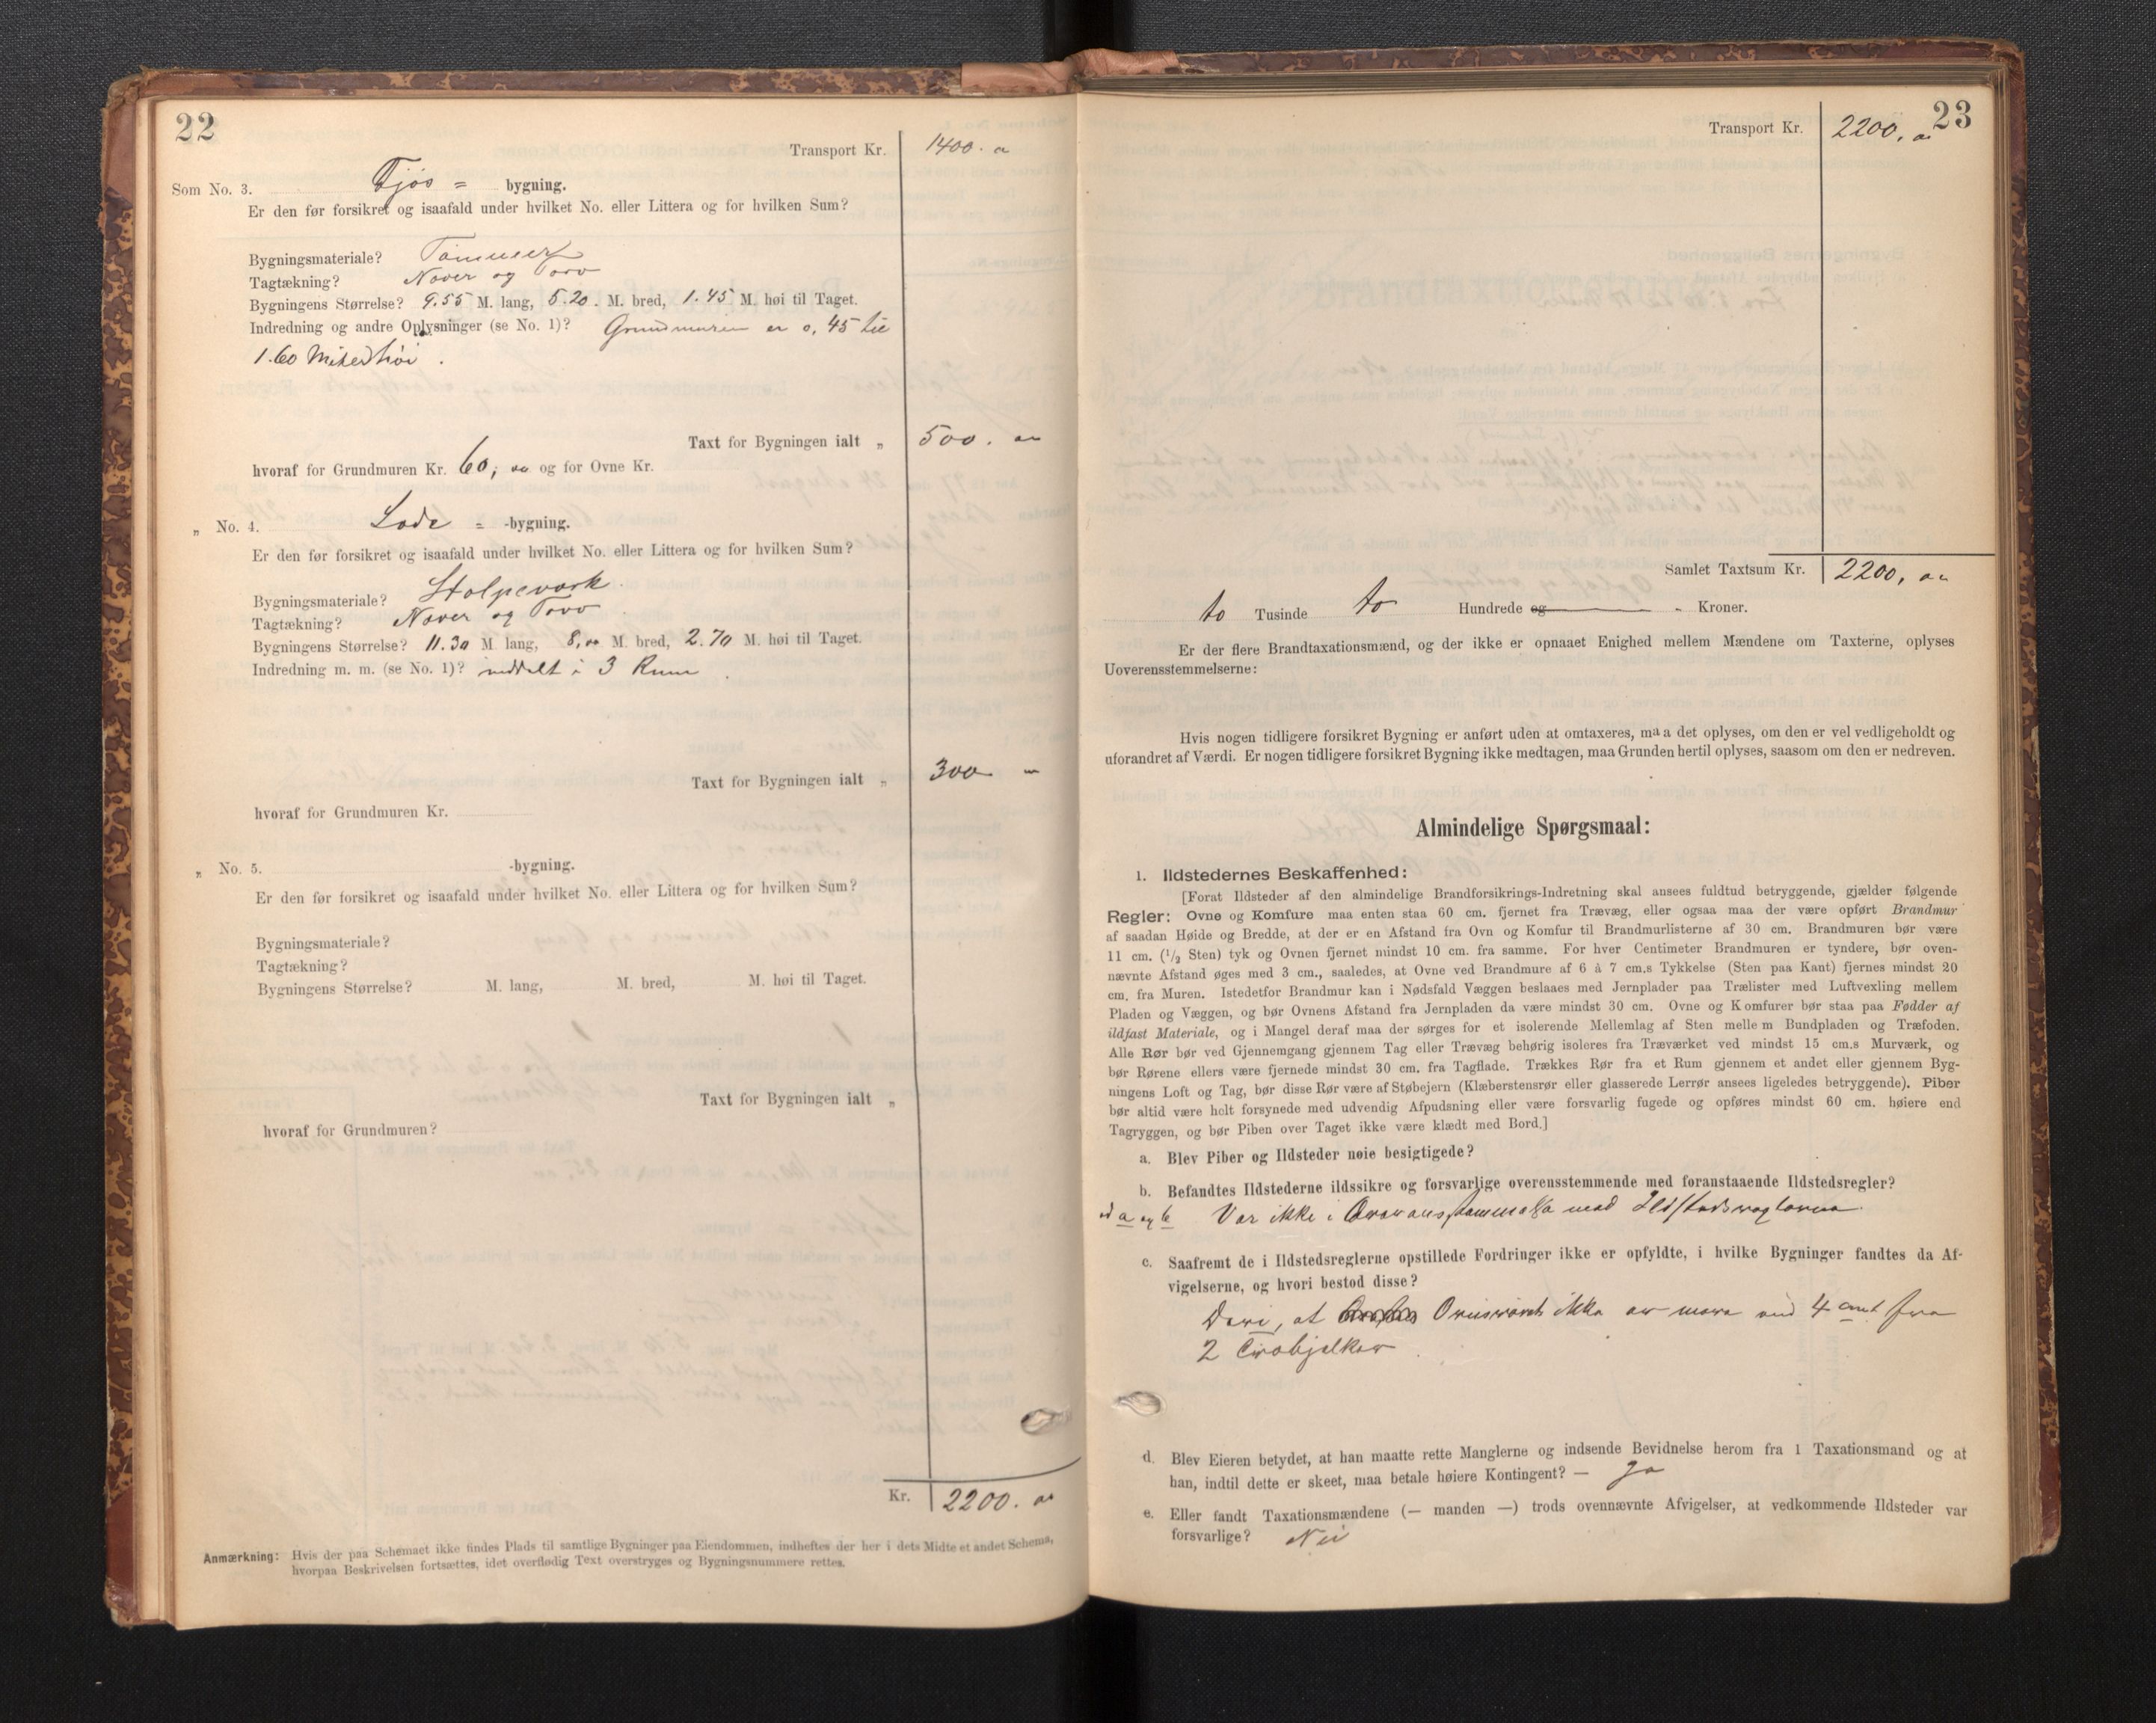 22
Transport Kr. 1400. 00
Som No. 3. Fjøs = bygning.
Er den før forsikret og isaafald under hvilket No. eller Littera og for hvilken Sum?
Bygningsmateriale? Tømmer
Tagtækning? Næver og Torv
Bygningens Størrelse? 9.55 M. lang, 5.20. M. bred, 1.45 M. høi til Taget.
Indredning og andre Oplysninger (se No. 1)? Grundmuren er 0,45 til
1.60 Meter høi.
Taxt for Bygningen ialt „ 500. 00
hvoraf for Grundmuren Kr. 60, 00 og for Ovne Kr.
„ No. 4. Lade = -bygning.
Er den før forsikret og isaafald under hvilket No. eller Littera og for hvilken Sum?
Bygningsmateriale? Stolpeværk.
Tagtækning? Næver og Torv
Bygningens Størrelse? 11.30 M. lang, 8,00 M. bred, 2.70 M. høi til Taget.
Indredning m. m. (se No. 1)? inddelt i 3 Rum.
Taxt for Bygningen ialt „ 300 „
hvoraf for Grundmuren Kr.
„ No. 5. -bygning.
Er den før forsikret og isaafald under hvilket No. eller Littera og for hvilken Sum?
Bygningsmateriale?
Tagtækning?
Bygningens Størrelse? M. lang, M. bred, M. høi til Taget.
Taxt for Bygningen ialt „
hvoraf for Grundmuren?
Kr. 2200. 00
Anmærkning: Hvis der paa Schemaet ikke findes Plads til samtlige Bygninger paa Eiendommen, indheftes der her i dets Midte et andet Schema,
hvorpaa Beskrivelsen fortsættes, idet overflødig Text overstryges og Bygningsnummere rettes.
23
Transport Kr. 2200, 00
Samlet Taxtsum Kr. 2200, 00
to Tusinde to Hundrede og - Kroner.
Er der flere Brandtaxationsmænd, og der ikke er opnaaet Enighed mellem Mændene om Taxterne, oplyses
Uoverensstemmelserne:
Hvis nogen tidligere forsikret Bygning er anført uden at omtaxeres, maa det oplyses, om den er vel vedligeholdt og
uforandret af Værdi. Er nogen tidligere forsikret Bygning ikke medtagen, maa Grunden hertil oplyses, saasom om den er nedreven.
Almindelige Spørgsmaal:
1. Ildstedernes Beskaffenhed:
[Forat Ildsteder af den almindelige Brandforsikrings-Indretning skal ansees fuldtud betryggende, gjælder følgende
Regler: Ovne og Komfure maa enten staa 60 cm. fjernet fra Trævæg, eller ogsaa maa der være opført Brandmur
af saadan Høide og Bredde, at der er en Afstand fra Ovn og Komfur til Brandmurlisterne af 30 cm. Brandmuren bør være
11 cm. (1/2 Sten) tyk og Ovnen fjernet mindst 10 cm. fra samme. For hver Centimeter Brandmuren er tyndere, bør oven-
nævnte Afstand øges med 3 cm., saaledes, at Ovne ved Brandmure af 6 à 7 cm.s Tykkelse (Sten paa Kant) fjernes mindst 20
cm. fra Muren. Istedetfor Brandmur kan i Nødsfald Væggen beslaaes med Jernplader paa Trælister med Luftvexling mellem
Pladen og Væggen, og bør Ovnens Afstand fra Jernpladen da være mindst 30 cm. Ovne og Komfurer bør staa paa Fødder af
ildfast Materiale, og i Mangel deraf maa der sørges for et isolerende Mellemlag af Sten mellem Bundpladen og Træfoden.
Alle Rør bør ved Gjennemgang gjennem Tag eller Trævæg behørig isoleres fra Træværket ved mindst 15 cm.s Murværk, og
bør Rørene ellers være fjernede mindst 30 cm. fra Tagflade. Trækkes Rør fra et Rum gjennem et andet eller gjennem Byg-
ningens Loft og Tag, bør disse Rør være af Støbejern (Klæberstensrør eller glasserede Lerrør ansees ligeledes betryggende). Piber
bør altid være helt forsynede med udvendig Afpudsning eller være forsvarlig fugede og opføres mindst 60 cm. høiere end
Tagryggen, og bør Piben over Taget ikke være klædt med Bord.]
a. Blev Piber og Ildsteder nøie besigtigede?
b. Befandtes Ildstederne ildssikre og forsvarlige overensstemmende med foranstaaende Ildstedsregler?
ad a og b Var ikke i Overensstemmelse med Ildstedsreglerne.
c. Saafremt de i Ildstedsreglerne opstillede Fordringer ikke er opfyldte, i hvilke Bygninger fandtes da Af-
vigelserne, og hvori bestod disse?
Deri, at ikke er mere end 4 cmt fra
2 Træbjelker.
d. Blev Eieren betydet, at han maatte rette Manglerne og indsende Bevidnelse herom fra 1 Taxationsmand og at
han, indtil dette er skeet, maa betale høiere Kontingent? — Ja
e. Eller fandt Taxationsmændene (— manden —) trods ovennævnte Afvigelser, at vedkommende Ildsteder var
forsvarlige? Nei